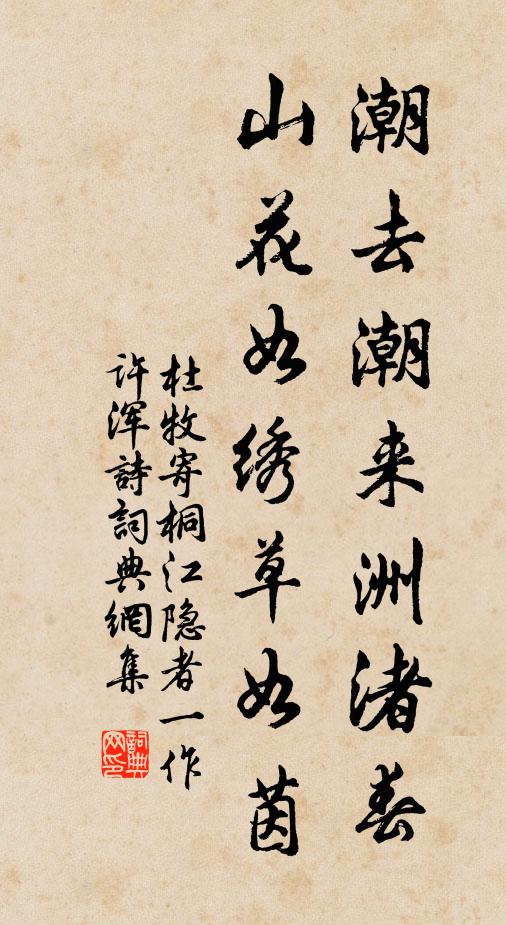 潮去潮来洲渚春
山花如绣草如茵
杜牧寄桐江隐者一作
许渾詩詞典網集
詞典网印